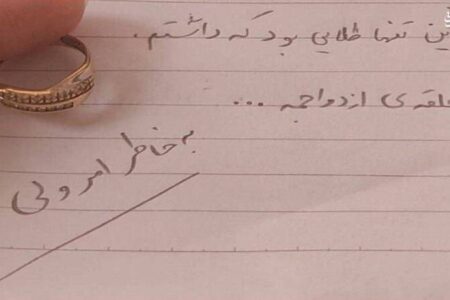 ین تنها طلایی بود که داشتم.
لقه ی ازدواجمه ...
به خاطر امر ولی